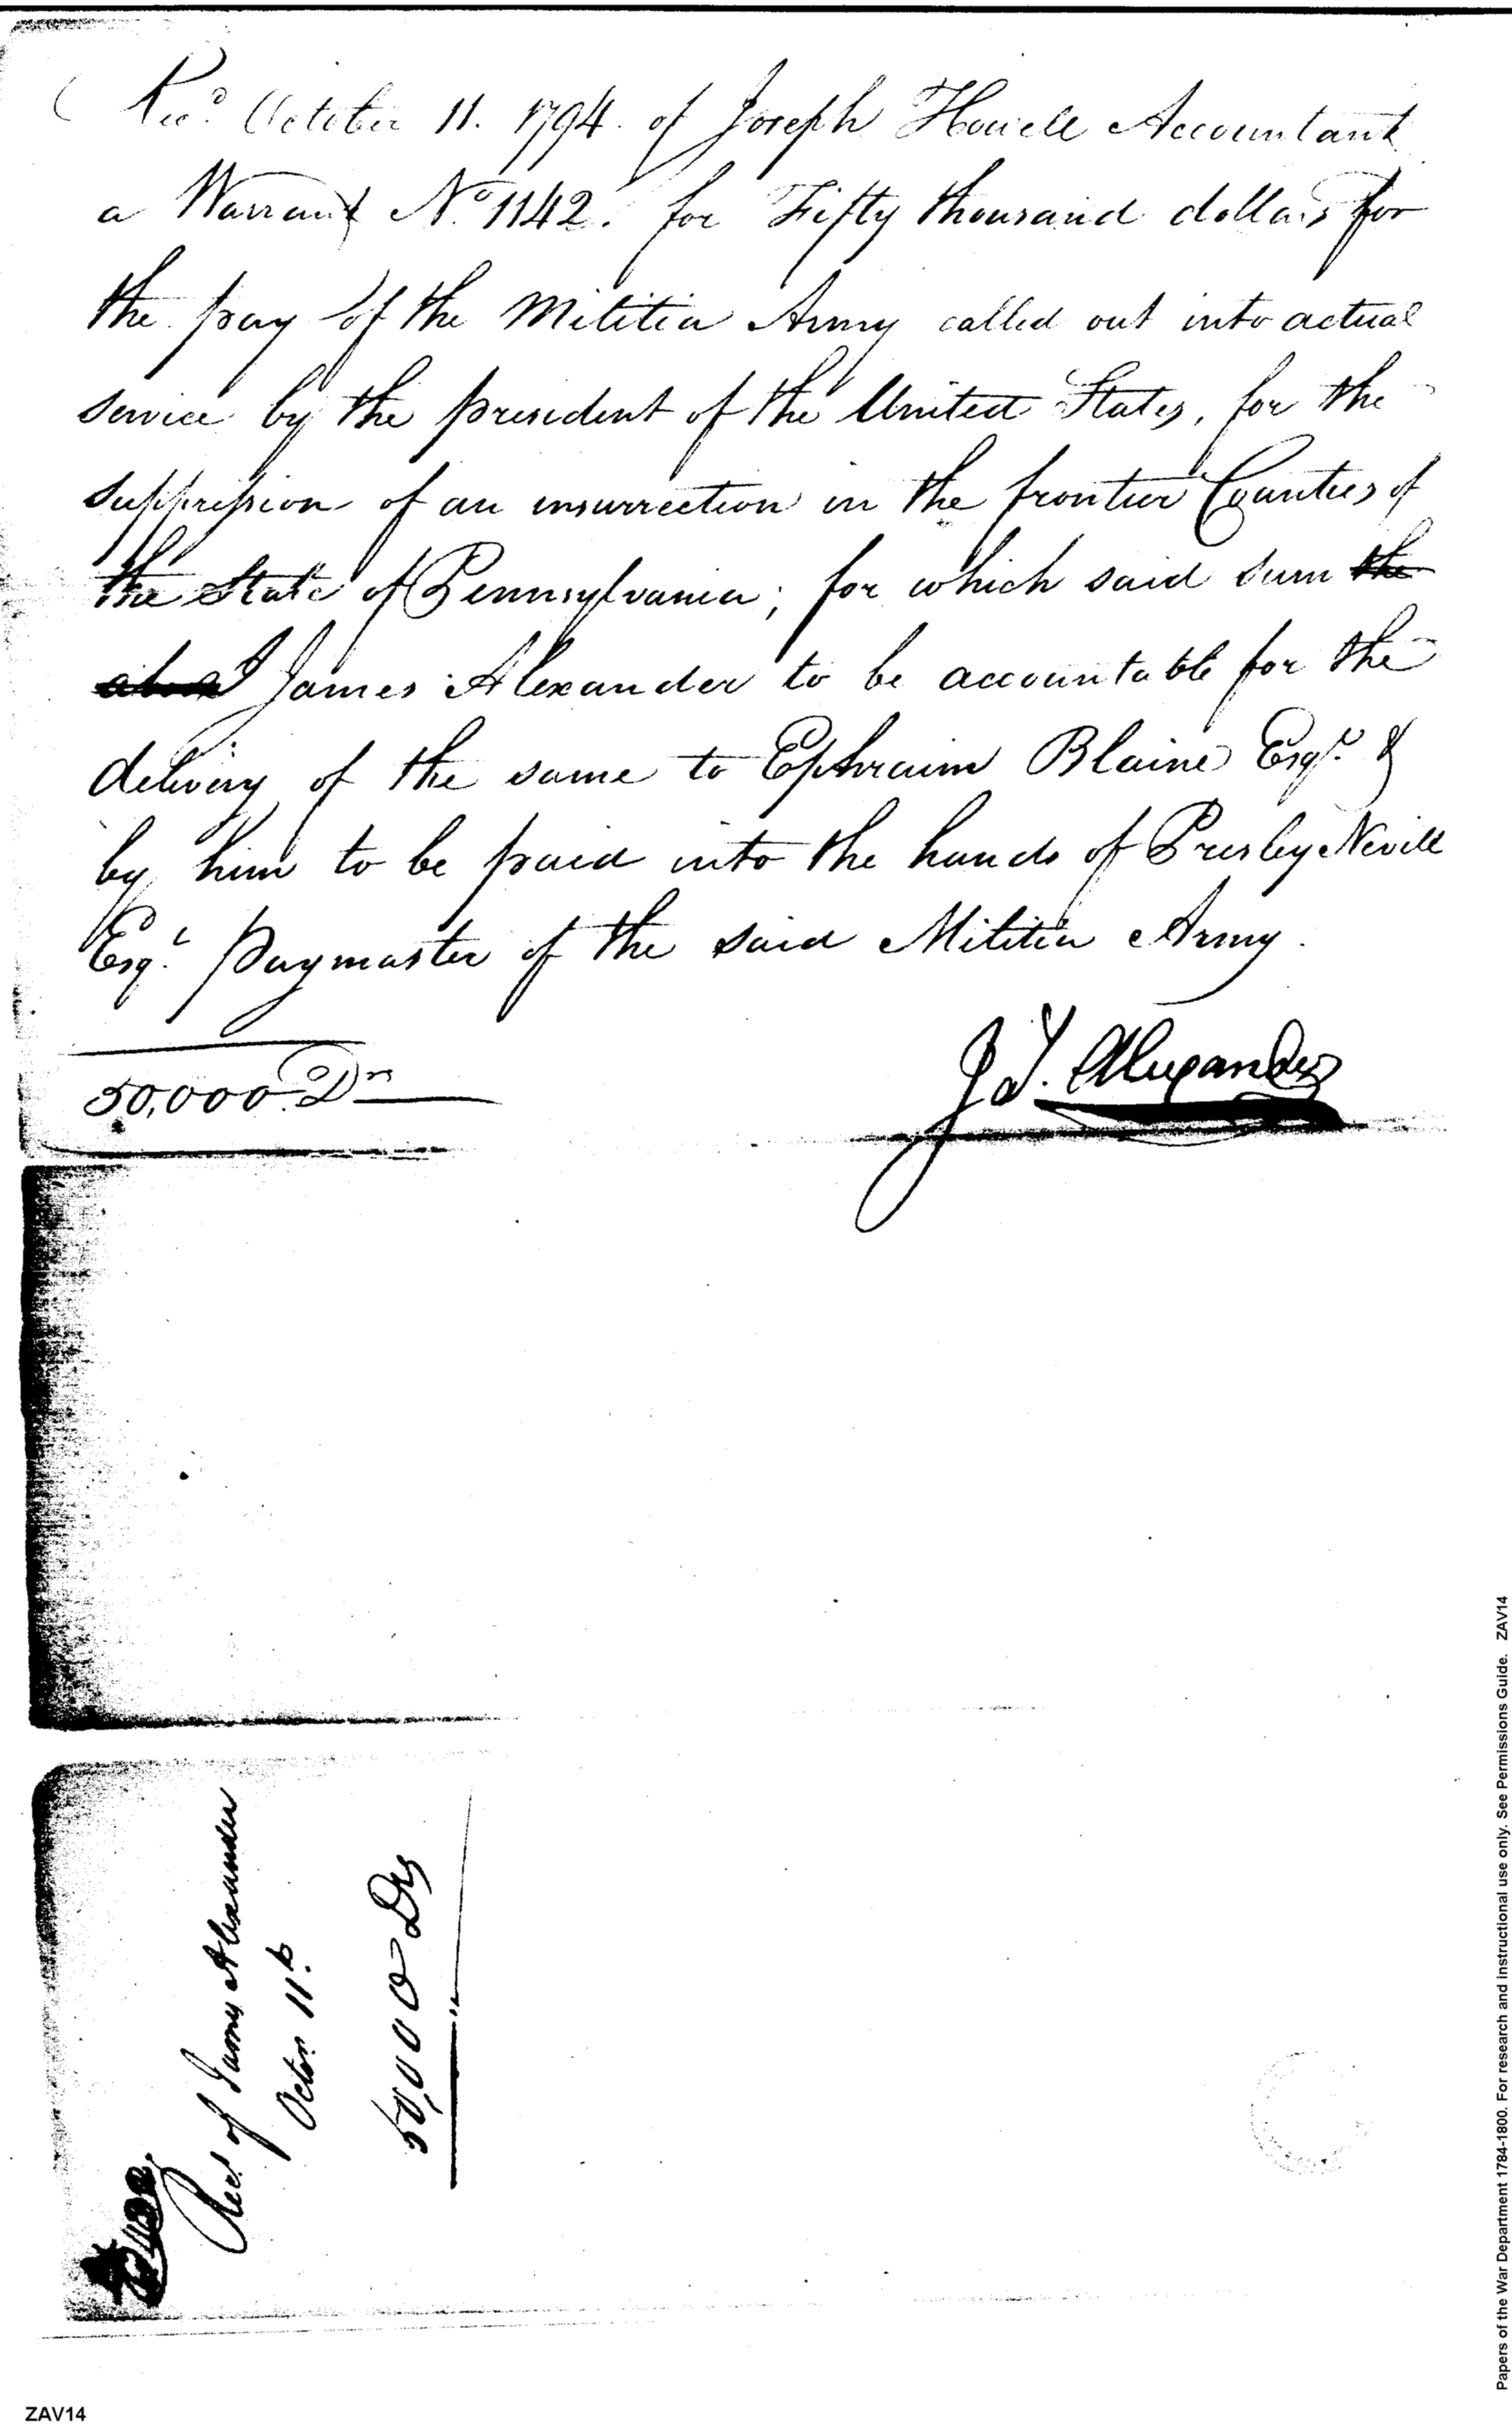 Rec.d October 11. 1794. of Joseph Howell Accountant
a Warrant No. 1142. for Fifty thousand dollars for
the pay of the Militia Army called out into actual
service by the president of the United States, for the
suppression of an insurrection in the frontier Counties of
the State of Pennsylvania; for which said sum the
I James Alexander to be accountable for the
delivery of the same to Ephraim Blaine Esqr. &
by him to be paid into the hands of Presley Nevill
Esqr. Paymaster of the said Militia Army.
50,000 Drs
J Y. Alexander
Rect of James Alexander
Octor. 11th
50,000 Drs
Papers of the War Department 1784-1800. For research and instructional use only. See Permissions Guide. ZAV14
ZAV14